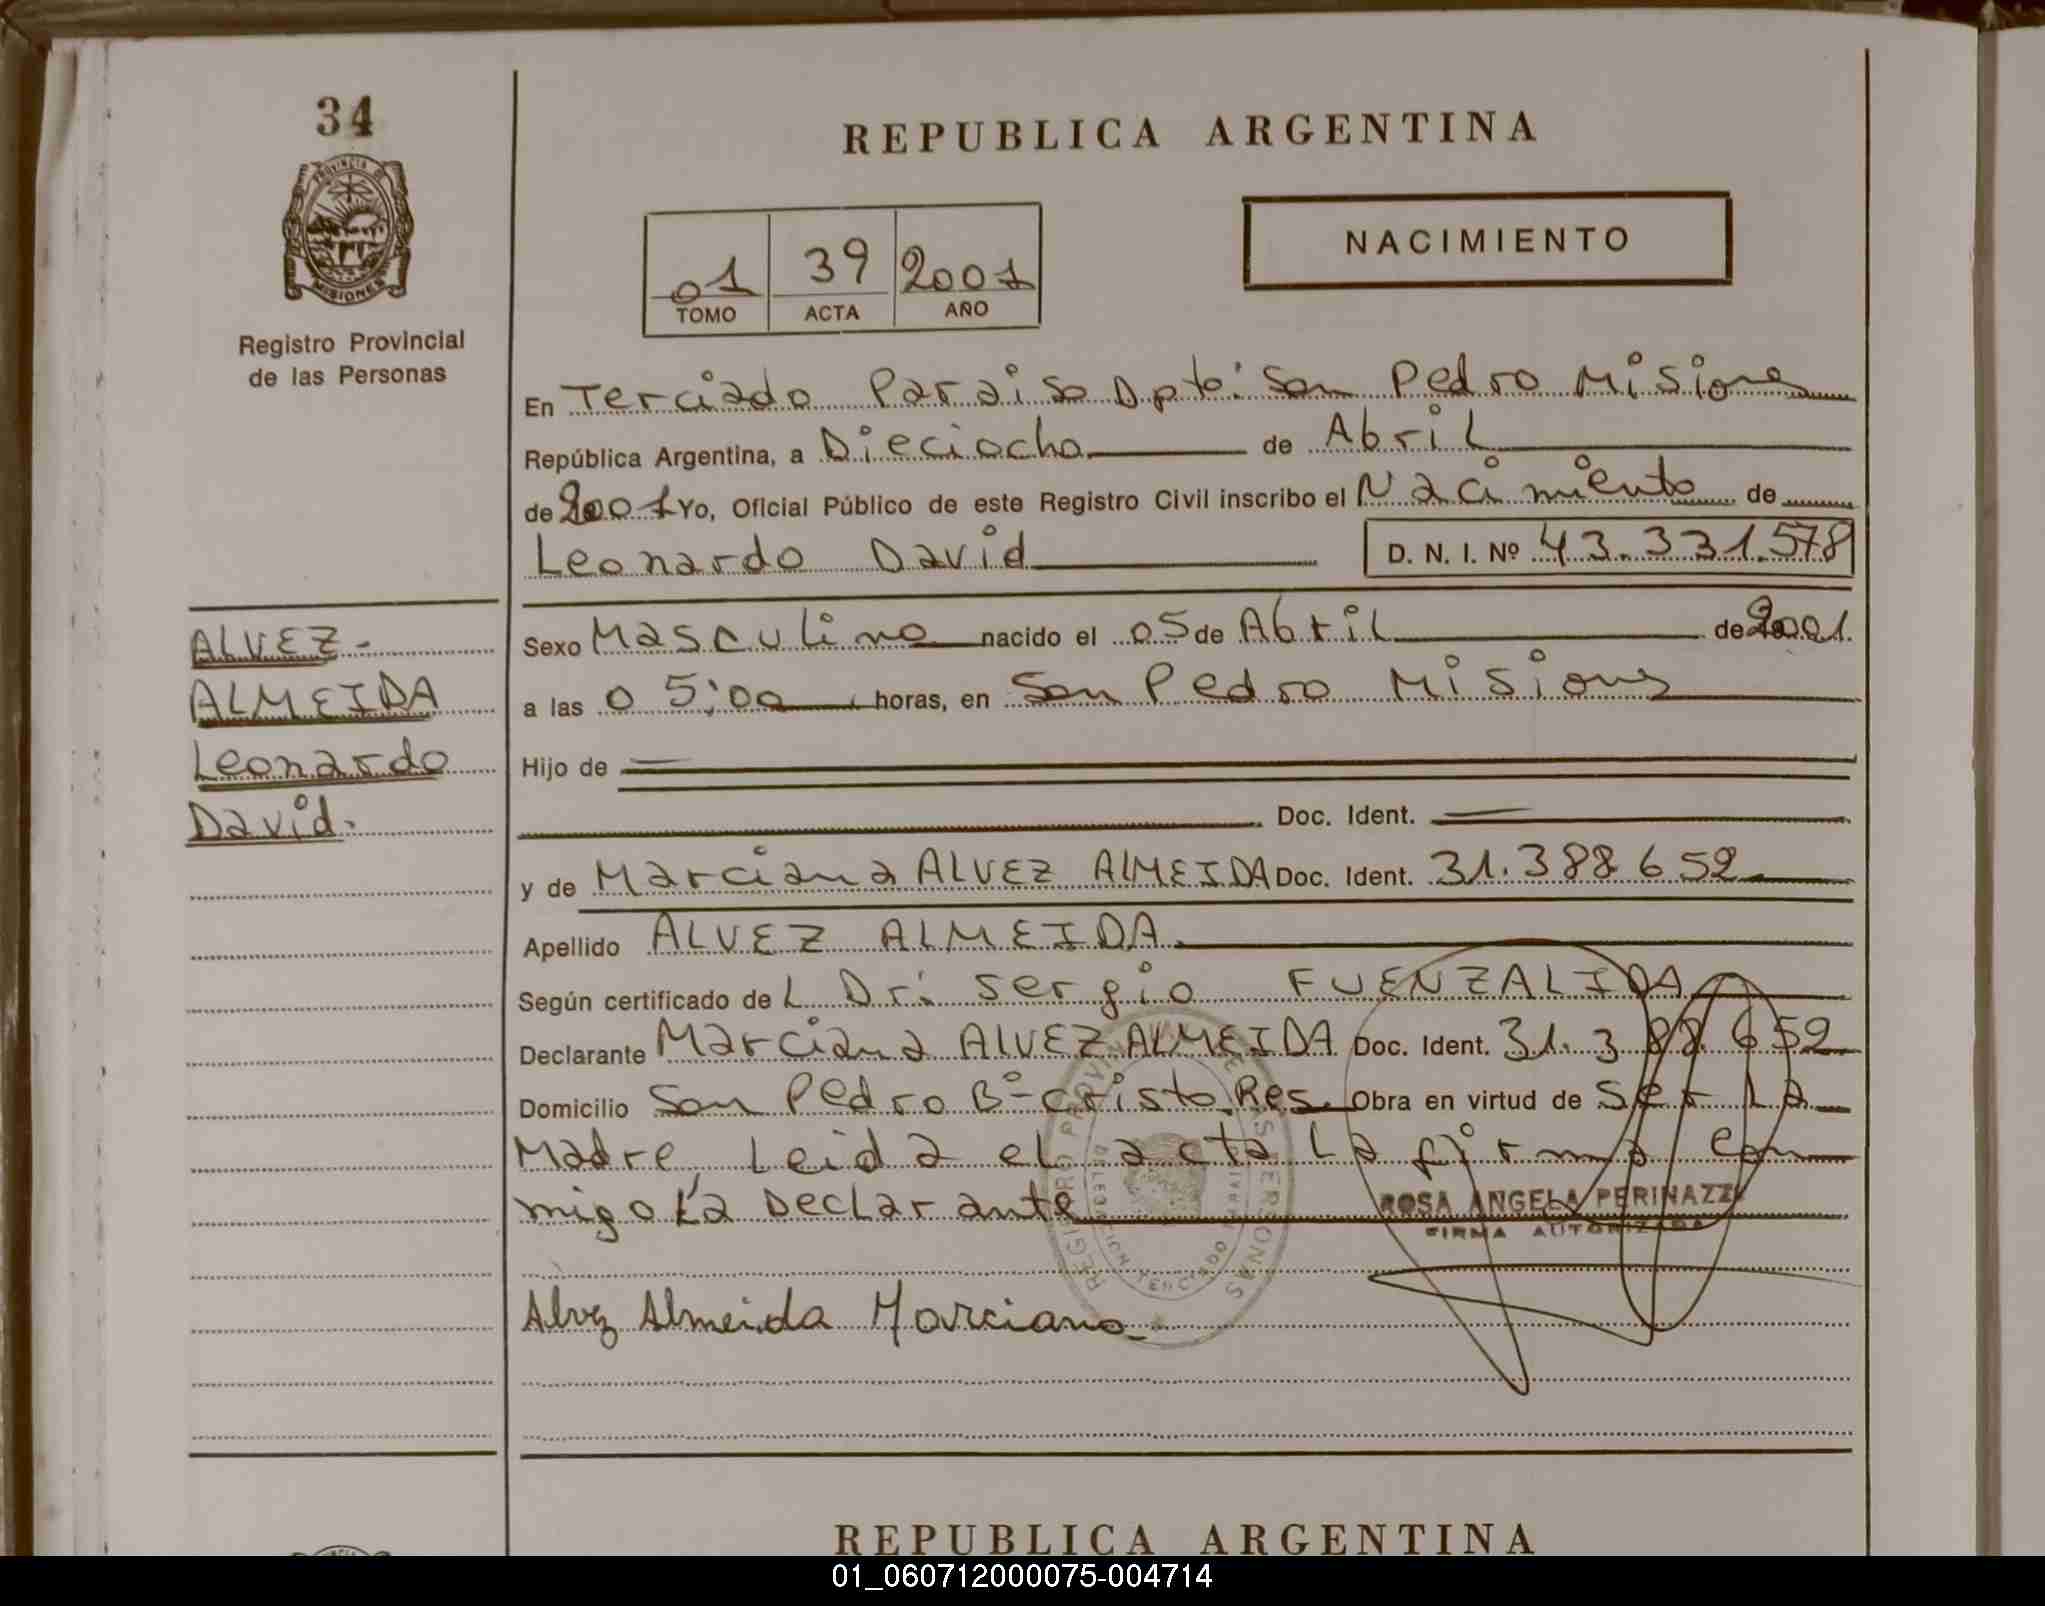 34
PROVINCIA DE
MISIONES
Registro Provincial
de las Personas
REPUBLICA ARGENTINA
NACIMIENTO
01 39 2001
TOMO ACTA AÑO
En Terciado Paraiso Dpto: San Pedro Misiones
República Argentina, a Dieciocho de Abril
de 2001 Yo, Oficial Público de este Registro Civil inscribo el Nacimiento de
Leonardo David D. N. I. Nº 43.331.578
ALVEZ-
ALMEIDA
Leonardo
David.
Sexo Masculino nacido el 05 de Abril de 2001.
a las 05:00 horas, en San Pedro Misiones
Hijo de
Doc. Ident.
y de Marciana ALVEZ ALMEIDA Doc. Ident. 31.388 652
Apellido ALVEZ ALMEIDA
Según certificado de L Dr: Sergio FUENZALIDA
Declarante Marciana ALVEZ ALMEIDA Doc. Ident. 31.388.652
Domicilio San Pedro Bº Cristo Res. Obra en virtud de Ser La
Madre, Leida el acta La firma con
migo La Declarante
ROSA ANGELA PERINAZZI
FIRMA AUTORIZADA
Alvez Almeida Marciana
REPUBLICA ARGENTINA
01_060712000075-004714